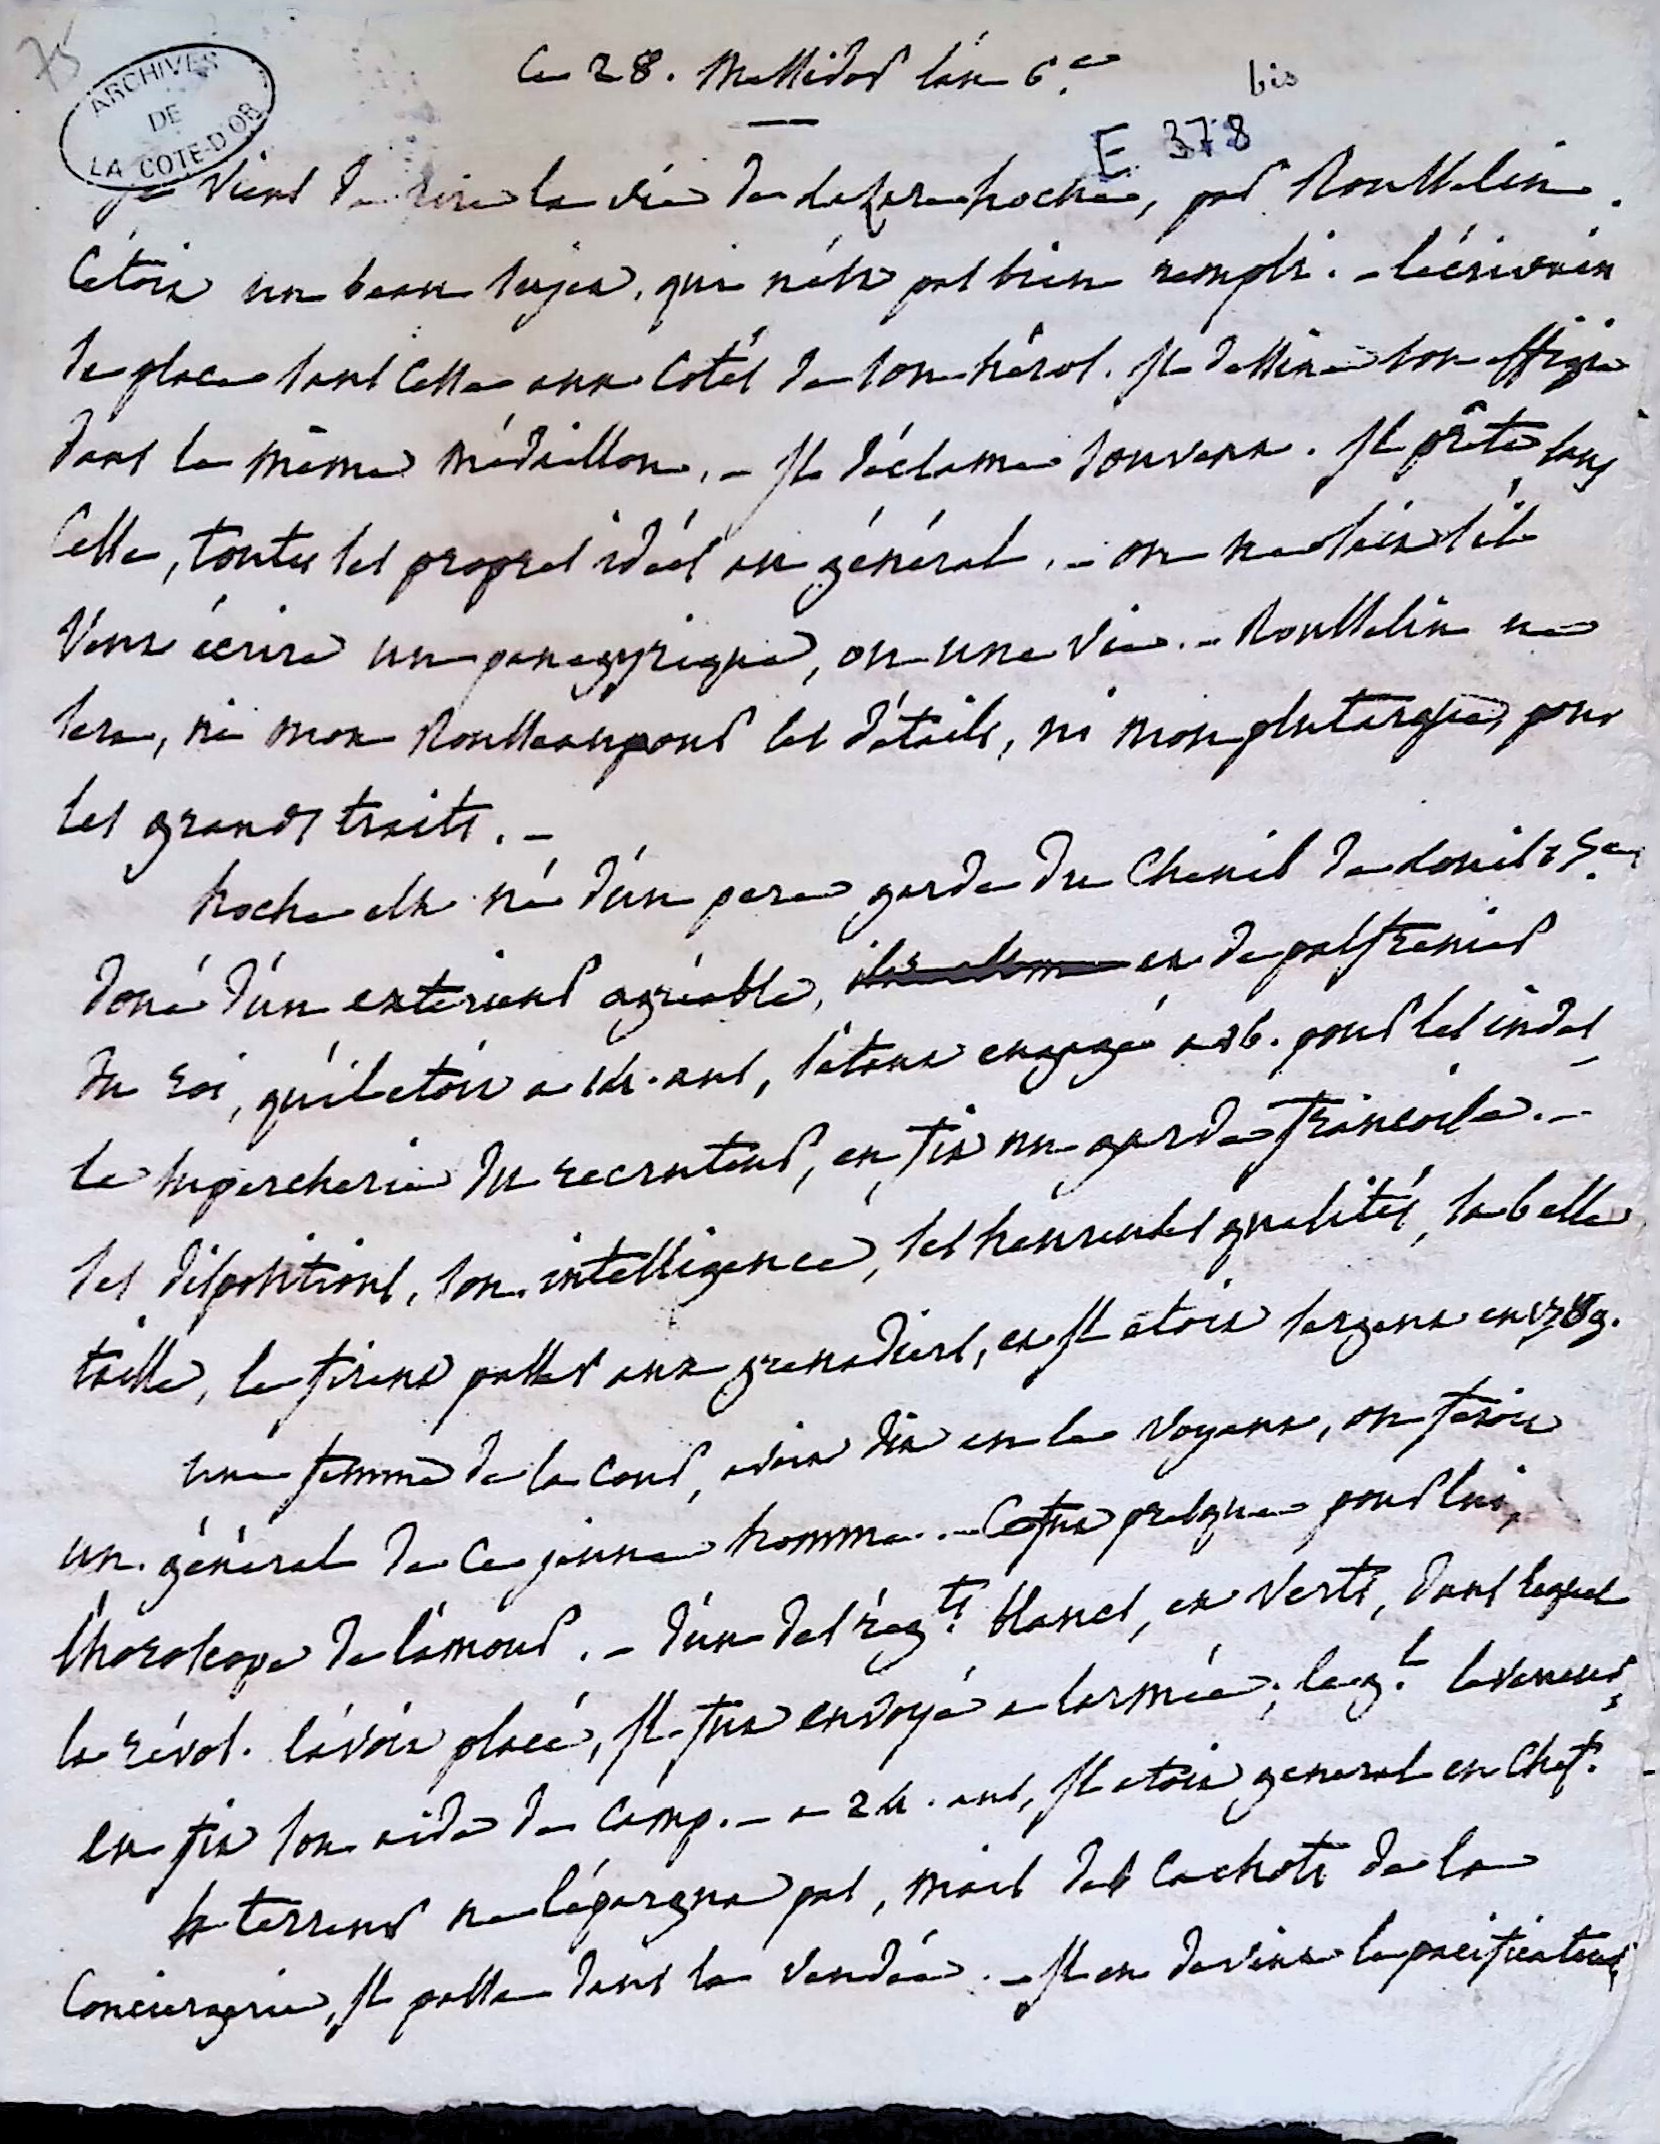 75
ARCHIVES
DE
LA COTE-D'OR
Ce 28. Messidor l'an 6.e
bis
E 378
Je viens de lire la vie de Lazare hoche, par Rousselin.
C'étoit un beau sujet, qui n'est pas bien rempli. – l'écrivain
se place sans cesse aux cotés de son héros. Il dessine son effigie
dans le même médaillon. – Il déclame souvent. Il prête sans
cesse, toutes ses propres idées au général. – on ne sait s'il
veut écrire un panegyrique, ou une vie. – Rousselin ne
sera, ni mon Rousseau pour les détails, ni mon plutarque, pour
les grands traits. –
hoche est né d'un pere garde du Chenil de Louis 15.e
doué d'un exterieur agréable, et de palfrenier
du roi, qu'il etoit a 14. ans, s'étant engagé a 16. pour les indes
la supercherie du recruteur, en fit un garde françoise. –
ses dispositions, son intelligence, ses heureuses qualités, sa belle
taille, le firent passer aux grenadiers, et Il etoit sergent en 1789.
une femme de la cour, avoit dit en le voyant, on feroit
un général de ce jeune homme. – Ce fut presque pour lui,
l'horoscope de l'amour. – d'un des rég.ts blancs, et verts, dans lequel
la révol. l'avoit placé, Il fut envoyé a l'armée; le g.l leveneur,
en fit son aide de camp. – a 24. ans, Il etoit general en Chef.
la terreur ne l'épargna pas, mais des cachots de la
Conciergerie, Il passa dans la vendée. – Il en devint le pacificateur,